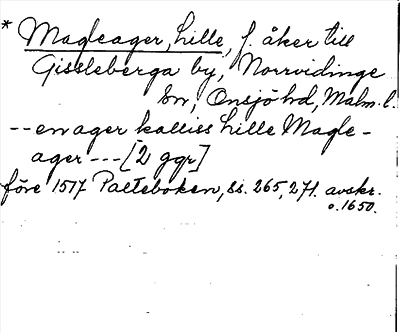 * Magleager, hille, f. åker till
Gissleberga by, Norrvidinge
sn, Onsjö hd, Malm. l.
-- en ager kalliss hille Magle-
ager --- [2 ggr]
före 1517 Palteboken, ss. 265, 271. avskr.
o. 1650.